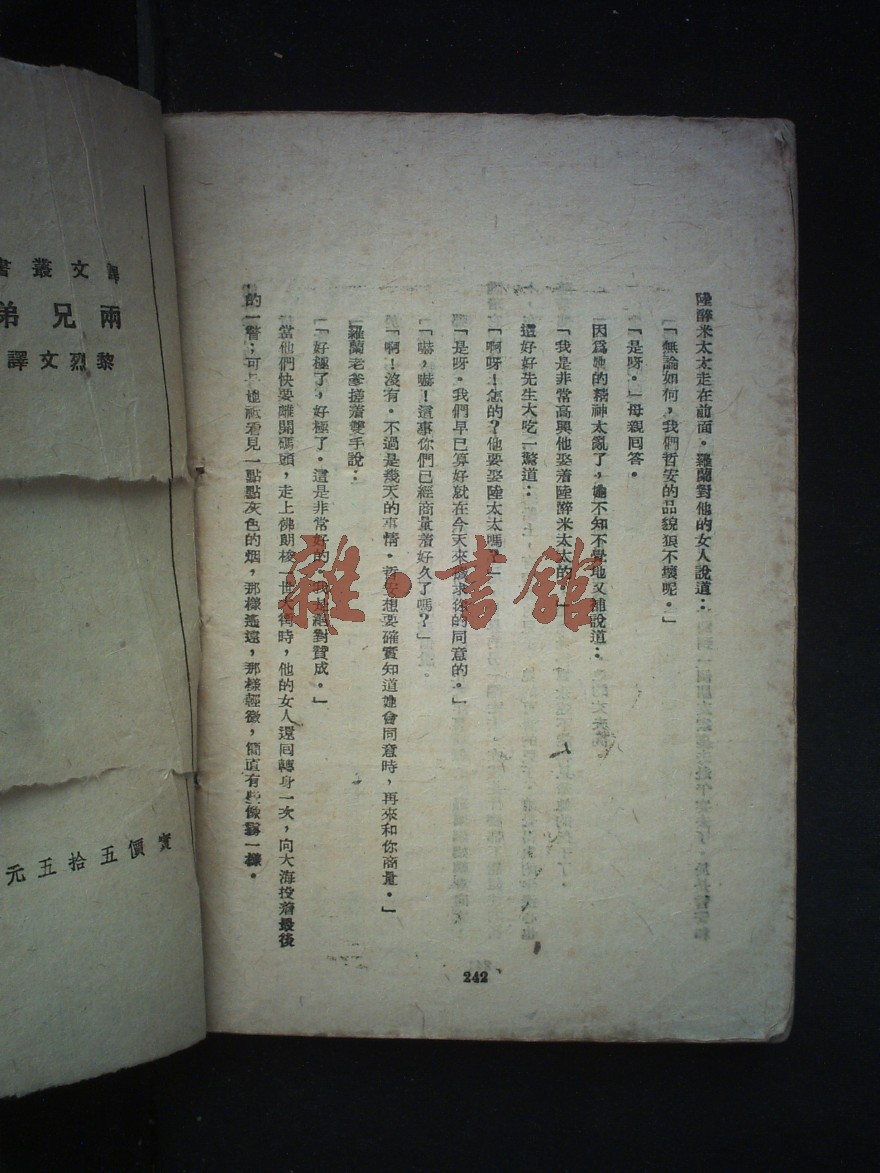 陸醉米太太走在前面。羅蘭對他的女人說道：
「無論如何，我們哲安的品貌狠不壞呢。」
「是呀。」母親回答。
因爲她的精神太亂了，她不知不覺地又補說道：
「我是非常高興他娶着陸醉米太太的。」
這好好先生大吃一驚道：
「啊呀！怎的？他要娶陸太太嗎？」
「是呀。我們早已算好就在今天來徵求你的同意的。」
「嚇，嚇！這事你們已經商量着好久了嗎？」
「啊！沒有。不過是幾天的事情。哲安想要確實知道她會同意時，再來和你商量。」
羅蘭老爹搓着雙手說：
「好極了，好極了。這是非常好的。我是絕對贊成。」
當他們快要離開碼頭，走上佛朗梭一世大街時，他的女人還回轉身一次，向大海投着最後
的一瞥；可是她祇看見一點點灰色的烟，那樣遙遠，那樣輕微，簡直有些像霧一樣。
242
譯文叢書
兩兄弟
黎烈文譯
實價五拾五元
雜·書館